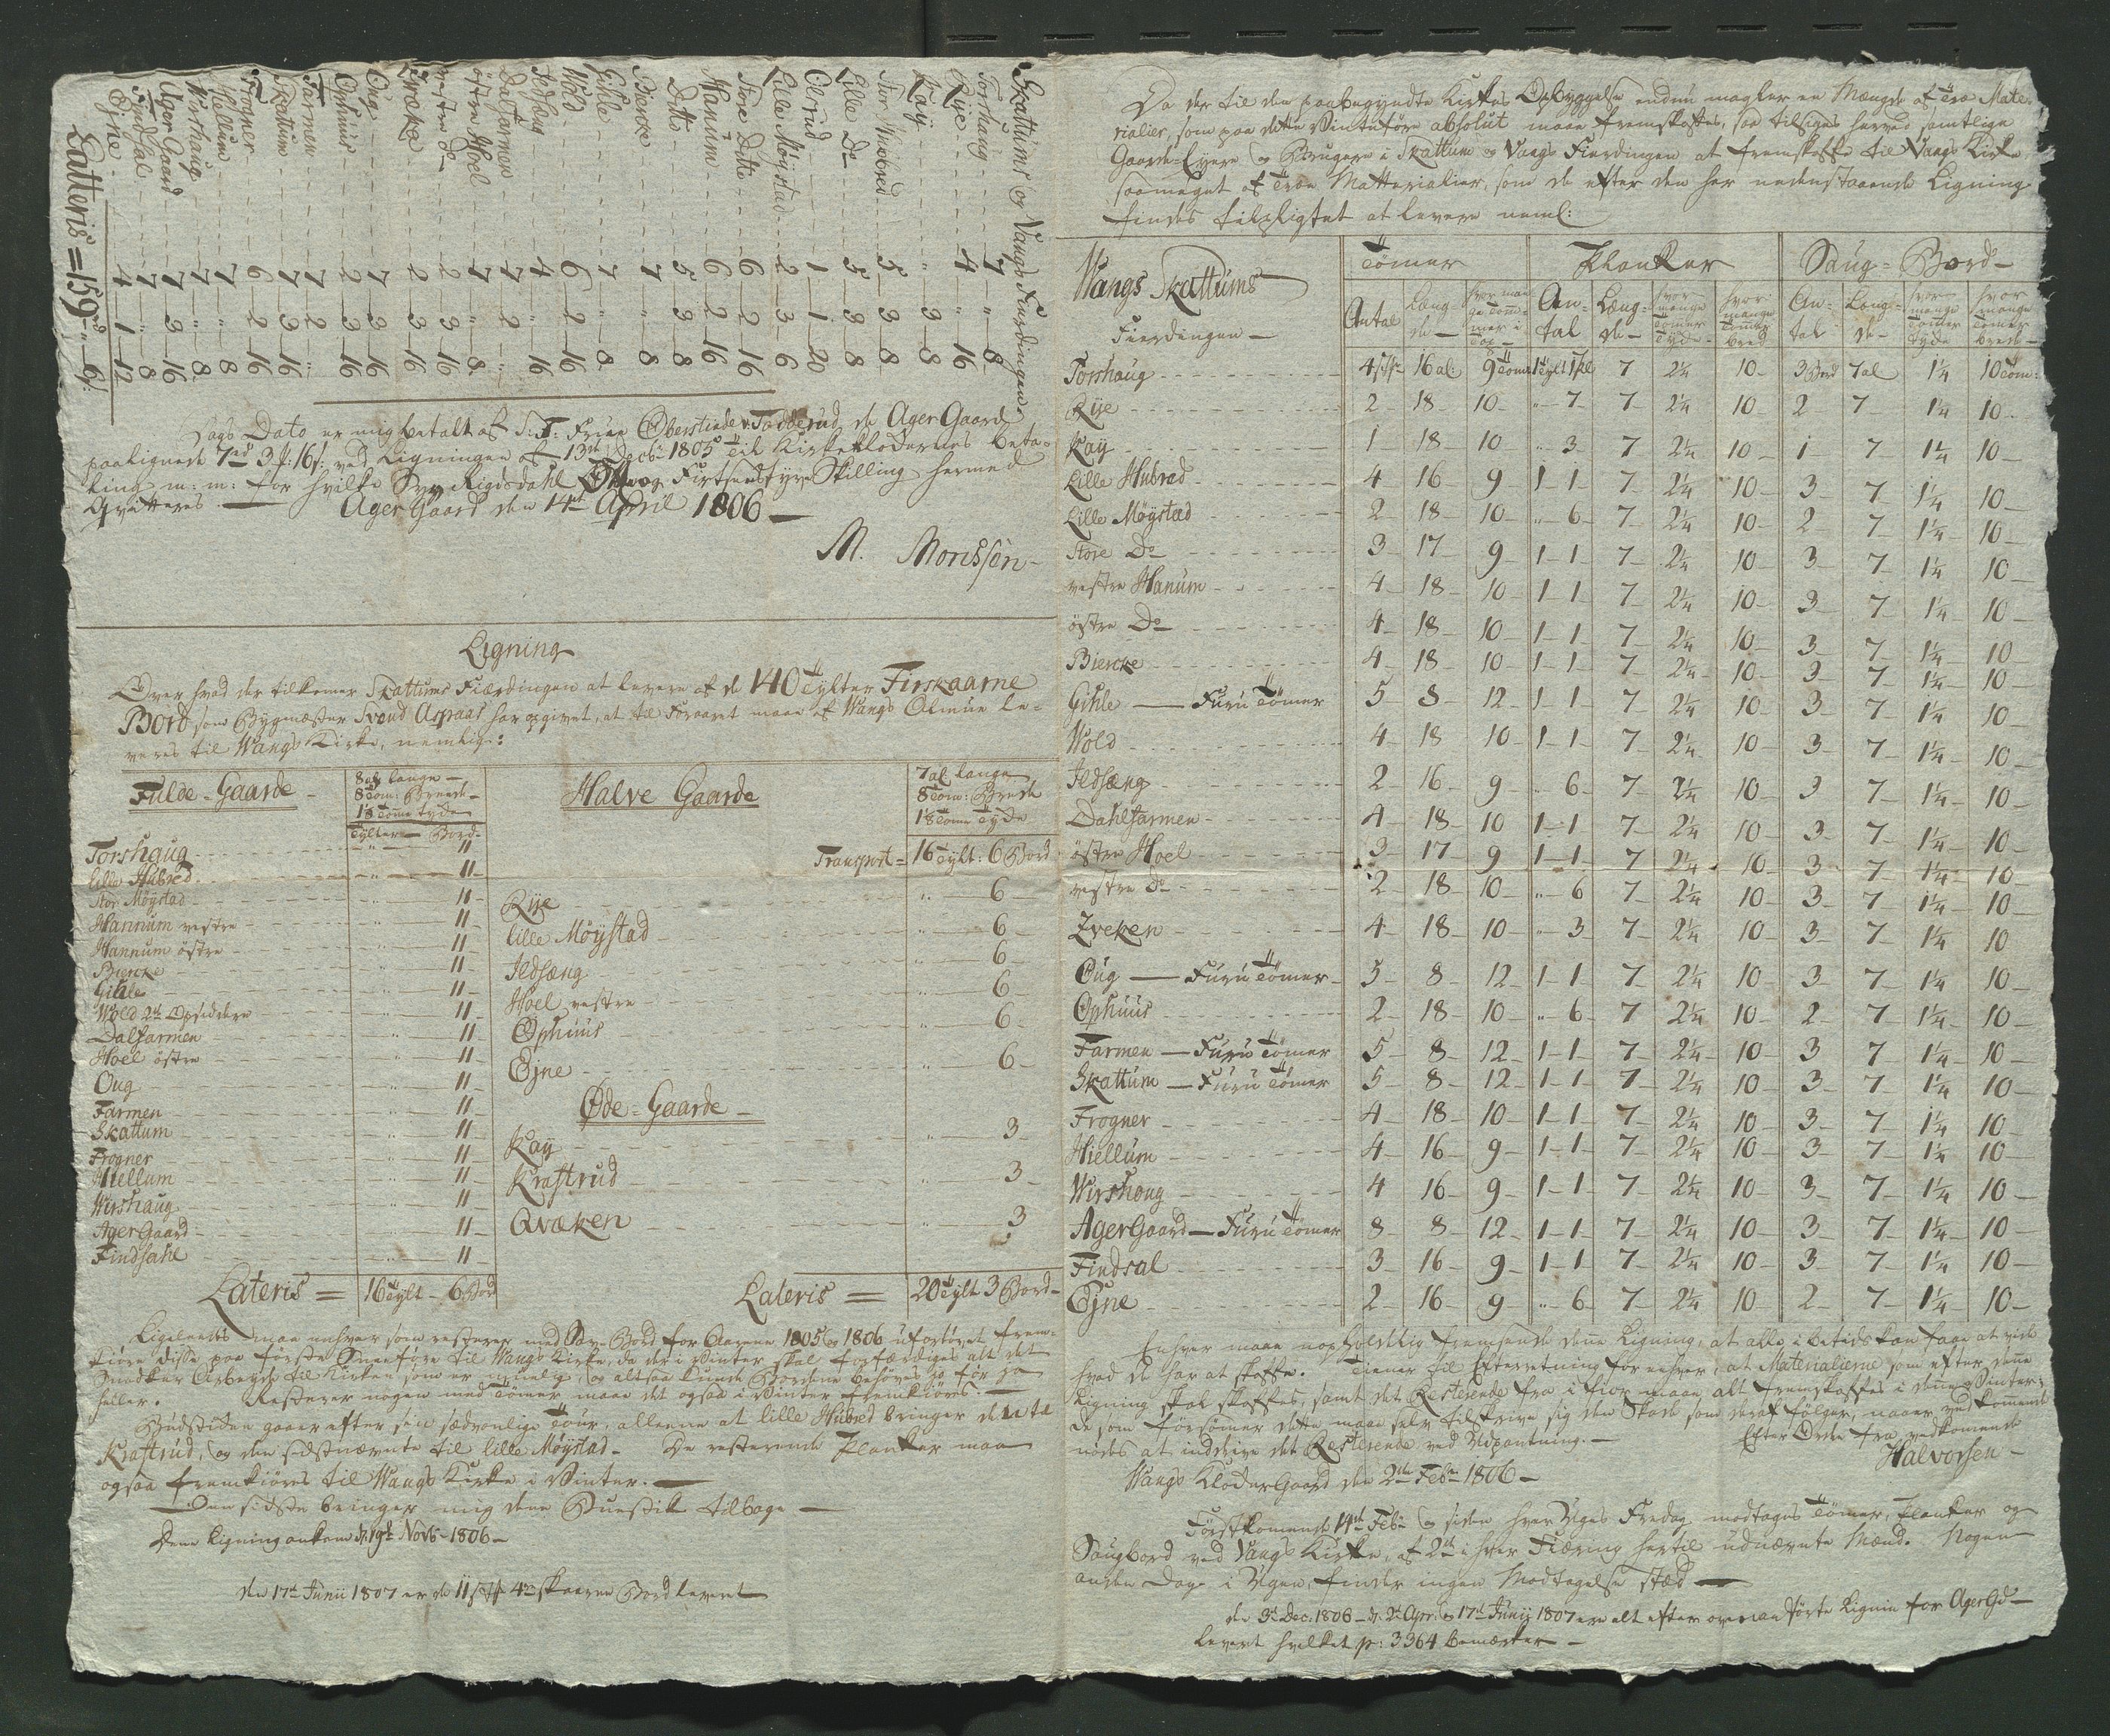 Skattums og Vangs Fierdingene
Torshaug - - - 7 - " - 8
Rije - - - 4 - " - 16
Kay - - - " - 3 - 8
Stor Huobred - - - 5 - 3 - 8
Lille Do - - - 5 - 3 - 8
Olrud - - - 1 - 1 - 20
Lille Møystad - - - 2 - 3 - 6
Store Ditto - - - 6 - 2 - 16
Hanum - - - 6 - 2 - 16
Ditto - - - 5 - 3 - 8
Biercke - - - 7 - " - 8
Gihle - - - 7 - " - 8
Wold - - - 6 - 2 - 16
Jldsæng - - - 4 - " - 16
Dalfarmen - - - 7 - 2 - "
østre Hoel - - - 7 - " - 8
vestre do - - - 2 - 3 - 16
Qvæken - - - 2 - 3 - 16
Oug - - - 7 - 3 - 16
Ophuus - - - 2 - 3 - 16
Farmen - - - 7 - 2 - "
Skattum - - - 7 - 3 - 16
Frogner - - - 6 - 2 - 16
Hiellum - - - 7 - " - 8
Wirshaug - - - 7 - " - 8
Ager Gaard - - - 7 - 3 - 16
Findsal - - - 7 - " - 8
Øjne - - - 4 - 1 - 12
Latteris = 159rd - " - 6s.
Dags Dato er mig betalt af S: T: Frue Oberstinde v: Todderud de Ager Gaard
paalignede 7rd 3f: 16s: ved Ligningen af 13de Decbr 1805 til Kirkeklodernes beta-
ling m: m: for hvilke Syv Rigsdahl Otteog Firtsindstyve Skilling hermed
Qvitteres. — Ager Gaard den 14de April 1806 —
M. Monsson -
Ligning
Over hvad der tilkomer Skattums Fierdingen at levere af de 140 Tylter Firskaarne
Bord som Bygmester Svend Aspaas har opgivet, at til Foraaret maae af Wangs Almue le-
veres til Wangs Kirke, nemlig:
Fulde-Gaarde - 8 al: lange - 8 Tom: Breede - 1⅛ Tome tyde
Tylter - Bord -
Torshaug - " - 11
lille Hubred - " - 11 -
Stor Møystad - " - 11 -
Hannum vestre - " - 11 -
Hannum østre - " - 11 -
Biercke - " - 11 -
Gihle - " - 11 -
Wold 2de Opsiddere - " - 11 -
Dalfarmen - " - 11 -
Hoel østre - " - 11 -
Oug - " - 11 -
Farmen - " - 11 -
Skattum - " - 11 -
Frogner - " - 11 -
Hiellum - " - 11 -
Wirshaug - " - 11 -
AgerGaard - " - 11 -
Findsahl - " - 11 -
Lateris = 16 Tylt - 6 Bord
Halve Gaarde 7 al lange 8 Tom: Brede 1⅛ Tome Tyde
Transport = 16 Tylt: 6 Bord
Rije - " - 6 -
lille Møystad - " - 6 -
Jldsæng - " - 6 -
Hoel vestre - " - 6 -
Ophuus - " - 6 -
Øjne - " - 6 -
Øde-Gaarde -
Kay - " - 3 -
Krastrud - " - 3 -
Qvæken - " - 3
Lateris = 20 Tylt 3 Bord -
Ligeledes maa enhver som resterer med Sav-Bord for Aarene 1805 og 1806 ufortøvet frem-
kiøre disse paa første Sneeføre til Wangs Kirke, da der i Vinter skal forfærdiges alt det
Snedker Arbeyde til Kirken som er muelig, og altsaa kunde Bordene behøves jo før jo
heller. Resterer nogen med Tømer maae det ogsaa i Vinter fremkiøres. —
Budstiden gaaer efter sin sædvanlige Tour, alleene at lille Hubred bringer dette til
Krastrud, og den sidstnævnte til lille Møystad - De resterende Planker maa
ogsaa fremkiøres til Wangs Kirke i Vinter. —
Den sidste bringer mig dene Buestik tilbage —
Dene Ligning ankom d. 19de Novb: 1806 -
den 17de Junii 1807 er de 11 st 4re skaarne Bord levert
Da der til den paabegyndte Kirkes Opbyggelse endnu magler en Mængde af Træ Mate-
rialier, som paa dette Vinterføre absolut maae fremskaffes, saa tilsiges herved samtlige
Gaard-Eyere og Brugere i Skattum og Vangs Fierdingen at fremskaffe til Vangs Kirke
saameget af Træe Matterialier, som de efter den her nedenstaaende Ligning
findes tilpligtet at levere neml:
Wangs Skattums Fierdingen — Tømer Planker Saug-Bord -
Antal Læng-de - hvor man-ge Tom-mer i Top - An-tal Læng-de - hvor mange Tomer Tyde - hvor mange Tomer bred An-tal Læng-de - hvor mange Tomer tyde hvor mange Tomer brede -
Torshaug 4 st 16 al: 9 Tome 1 Tylt 1 pl 7 2¼ 10 - 3 Bord 7 al 1¼ 10 Tom:
Rije 2 - 18 10 - " - 7 7 2¼ 10 2 7 - 1¼ 10 -
Kay 1 18 10 " 3 7 2¼ 10 - 1 - 7 1¼ 10 -
Lille Hubred 4 16 9 1 - 1 - 7 2¼ 10 - 3 - 7 1¼ 10 -
Lille Møystad 2 - 18 - 10 - " - 6 - 7 - 2¼ 10 - 2 - 7 - 1¼ 10 -
Store Do 3 - 17 - 9 - 1 - 1 7 - 2¼ 10 3 - 7 - 1¼ 10 -
vestre Hanum 4 - 18 - 10 - 1 - 1 7 - 2¼ 10 - 3 - 7 1¼ 10 -
østre Do 4 - 18 - 10 - 1 - 1 7 2¼ 10 3 - 7 1¼ 10 -
Biercke 4 - 18 - 10 - 1 - 1 7 2¼ 10 - 3 - 7 1¼ 10 -
Gihle — Furu Tømer 5 8 12 - 1 - 1 7 - 2¼ 10 - 3 - 7 - 1¼ 10 -
Wold 4 - 18 10 - 1 - 1 7 - 2¼ 10 - 3 - 7 - 1¼ 10 -
Jldsæng 2 - 16 - 9 - " - 6 - 7 2¼ 10 - 3 7 - 1¼ 10 -
Dahlfarmen 4 - 18 - 10 1 - 1 7 - 2¼ 10 - 3 - 7 - 1¼ 10 -
østre Hoel 3 - 17 - 9 1 - 1 - 7 2¼ 10 - 3 - 7 1¼ 10 -
vestre Do 2 - 18 - 10 - " - 6 7 - 2¼ 10 - 3 - 7 - 1¼ 10 -
Zveken 4 - 18 - 10 - " - 3 7 - 2¼ 10 - 3 - 7 - 1¼ 10
Oug — Furu Tømer - 5 - 8 - 12 1 - 1 - 7 - 2¼ 10 - 3 - 7 - 1¼ 10 -
Ophuus 2 - 18 - 10 - " - 6 - 7 2¼ 10 - 2 - 7 - 1¼ 10 -
Farmen — Furu Tømer 5 - 8 - 12 - 1 - 1 - 7 - 2¼ - 10 - 3 7 - 1¼ 10 -
Skattum — Furu Tømer 5 - 8 - 12 - 1 - 1 - 7 - 2¼ 10 - 3 - 7 - 1¼ 10 -
Frogner 4 - 18 - 10 - 1 - 1 7 2¼ 10 - 3 - 7 - 1¼ 10 -
Hiellum 4 - 16 - 9 - 1 - 1 - 7 - 2¼ 10 - 3 - 7 - 1¼ 10 -
Wirshoug 4 16 - 9 - 1 - 1 - 7 - 2¼ 10 - 3 - 7 - 1¼ 10 -
AgerGaard — Furu Tømer 8 - 8 - 12 - 1 - 1 - 7 - 2¼ 10 - 3 - 7 - 1¼ 10 -
Findsal 3 - 16 - 9 - 1 - 1 7 - 2¼ 10 - 3 - 7 - 1¼ 10 -
Øjne 2 - 16 - 9 " - 6 - 7 - 2¼ 10 - 2 - 7 - 1¼ 10 -
Enhver maae uopholdelig fremsende dene Ligning, at alle i betids kan faae at vide
hvad de har at skaffe. Tiener til Efterretning for enhver, at Materialierne som efter dene
Ligning skal skaffes, samt det Resterende fra i fior maae alt fremskaffes i dene Vinter:
de som forsømer dette maae selv tilskrive sig den Skade som deraf følger, naar vedkomende
nødes at inddrive det Resterende ved Udpantning. — Efter Ordre fra vedkomende
Wangs KloderGaard den 2den Febr: 1806 - Halvorsen -
Førstkomende 14de Febr: og siden hver Uges Fredag modtages Tømer, Planker og
Saugbord ved Vangs Kirke, af 2de i hver Fiering hertil udnævnte Mænd. Nogen
anden Dag i Ugen finder ingen Modtagelse sted —
den 3de Decr. 1806 - d. 2de Apr. og 17de Junij 1807 er alt efter ovenanførte Lignin for AgerGd -
levert hvilket p: 3364 bemærker -